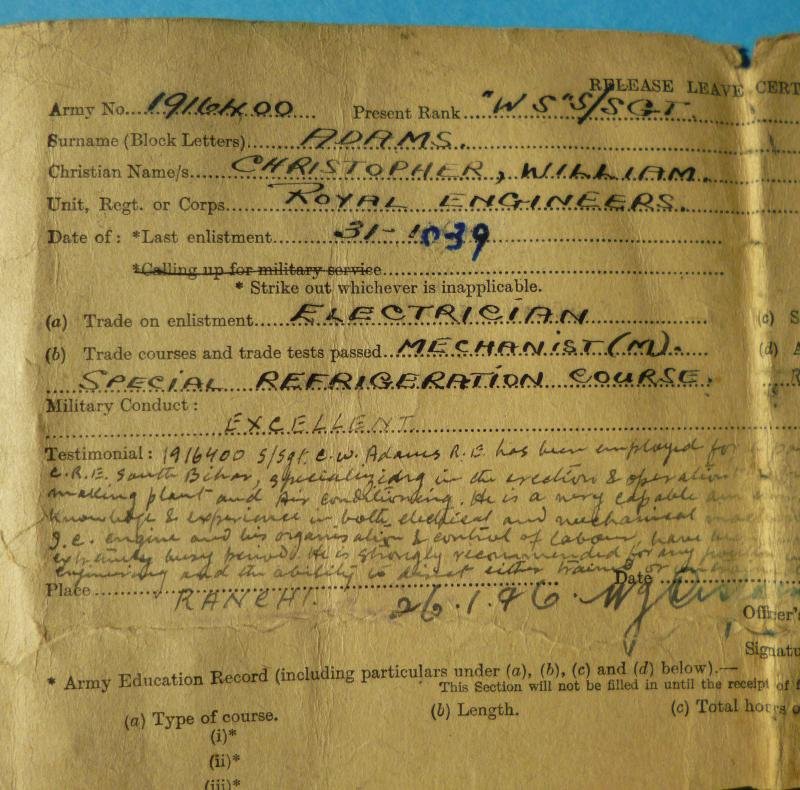 RELEASE LEAVE CERT
Army No. 1916400 Present Rank "WS" S/SGT.
Surname (Block Letters) ADAMS.
Christian Name/s CHRISTOPHER, WILLIAM.
Unit, Regt. or Corps ROYAL ENGINEERS.
Date of: *Last enlistment 31-1039
*Calling up for military service
* Strike out whichever is inapplicable.
(a) Trade on enlistment ELECTRICIAN (c) S
(b) Trade courses and trade tests passed MECHANIST (M). (d) A
SPECIAL REFRIGERATION COURSE.
Military Conduct:
EXCELLENT
Testimonial: 1916400 S/Sgt. C.W. Adams R.E. has been employed for
C.R.E. South Bihar, specializing in the erection & operation
making plant and Air conditioning. He is a very capable
Knowledge & experience in both electrical and mechanical
I.C. engine and his organisation & control of labour, have
extremely busy period. He is strongly recommended for any
engineering and the ability to direct either training or
Place RANCHI. 26.1.46. Date
Officer's
Signatu
* Army Education Record (including particulars under (a), (b), (c) and (d) below).—
This Section will not be filled in until the receipt of f
(a) Type of course. (b) Length. (c) Total hours o
(i)*
(ii)*
(iii)*